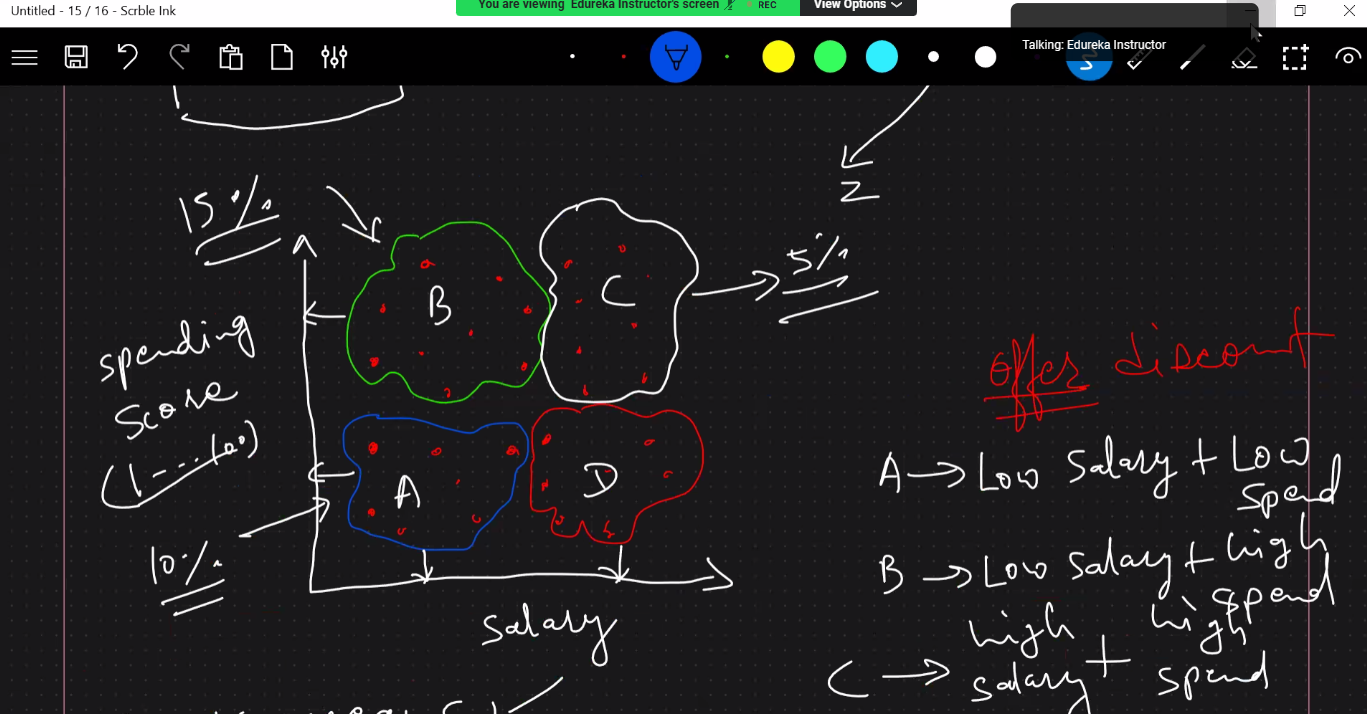 Untitled - 15 / 16 - Scrble Ink
You are viewing Edureka Instructor's screen
REC
View Options
Talking: Edureka Instructor
Z
15%
B
C
5%
spending
score
(1---10)
offer discount
A
D
A → Low Salary + Low
spend
10%
B → Low Salary + high
spend
salary
high high
C → salary + spend